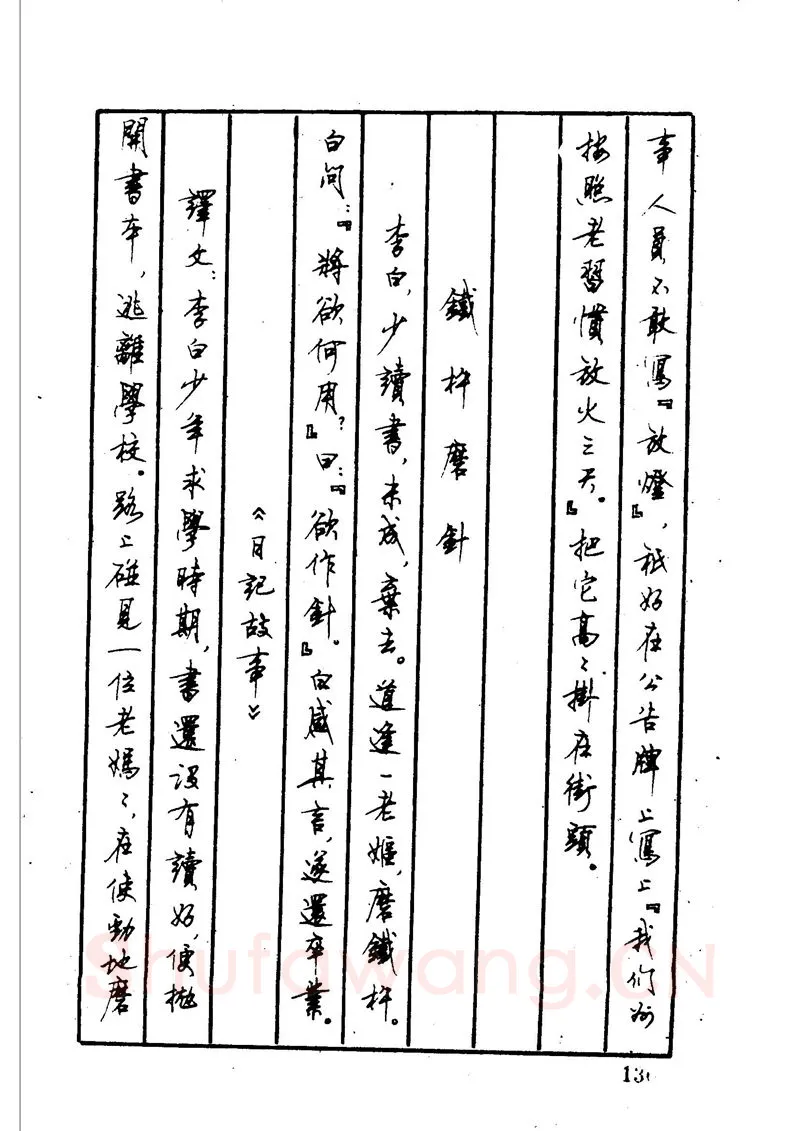 事人員不敢寫『放燈』，祇好在公告牌上寫上『我们州
按照老習慣放火三天。』把它高々掛在街頭。
鐵杵磨針
李白，少讀書，未成，棄去。道逢一老嫗，磨鐵杵。
白问：『將欲何用？』曰：『欲作針。』白感其言，遂還卒業。
《日記故事》
譯文：李白少年求學時期，書還没有讀好，便拋
開書本，逃離學校。路上碰見一位老媽々，在使勁地磨
Shufawang.CN